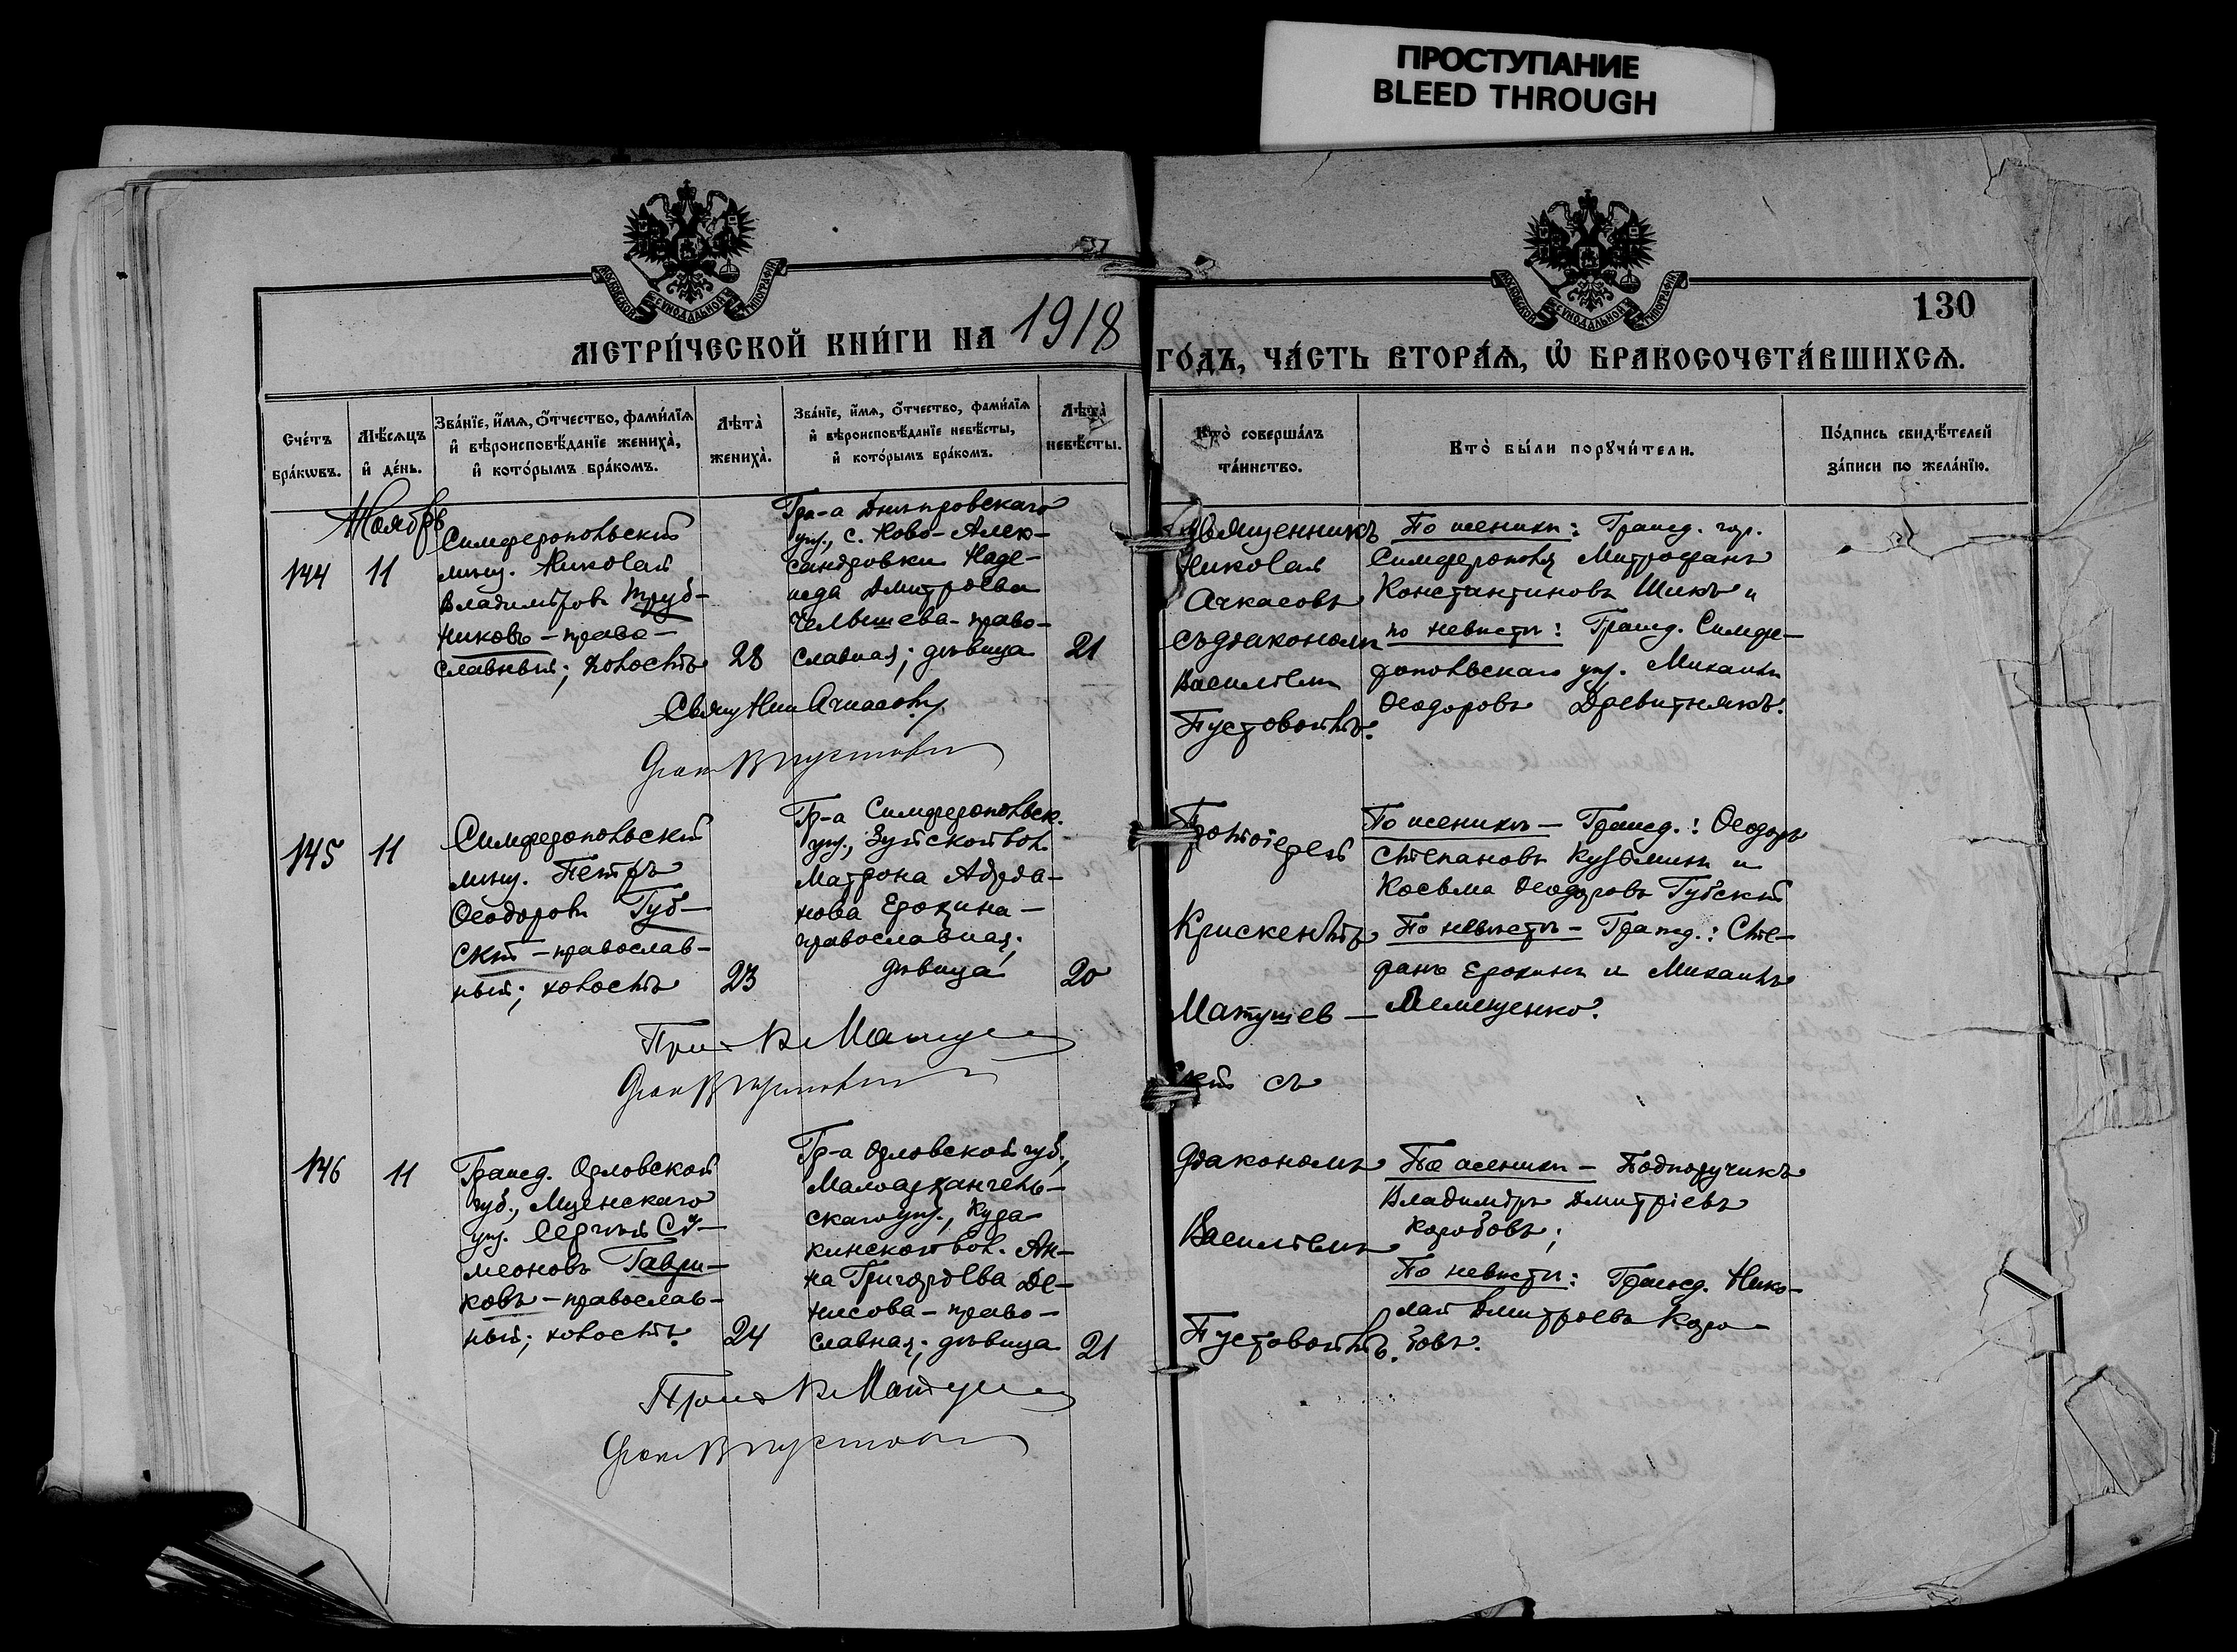 ПРОСТУПАНИЕ
BLEED THROUGH
МОСКОВСКОЙ СѴНОДАЛЬНОЙ ТИПОГРАФІИ
МОСКОВСКОЙ СѴНОДАЛЬНОЙ ТИПОГРАФІИ
130
МЕТРИ́ЧЕСКОЙ КНИ́ГИ НА 1918
ГО́ДЪ, ЧА́СТЬ ВТОРА́Ѧ, Ѡ БРАКОСОЧЕТА́ВШИХСѦ.
Сче́тъ бра́кѡвъ.
Мѣ́сѧцъ и де́нь.
Зва́нїе, и́мѧ, ѻ́тчество, фами́лїѧ
и вѣроисповѣ́данїе жениха̀,
и кото́рымъ бра́комъ.
Лѣта̀ жениха̀.
Зва́нїе, и́мѧ, ѻ́тчество, фами́лїѧ
и вѣроисповѣ́данїе невѣ́сты,
и кото́рымъ бра́комъ.
Лѣта̀ невѣ́сты.
Кто̀ соверша́лъ
та́инство.
Кто̀ бы́ли порꙋчи́тели.
По́дпись свидѣ́телей
за́писи по жела́нїю.
Ноябрь
144
11
Симферопольскій
мѣщ. Николай
Владиміровъ Труб-
никовъ - право-
славный; холостъ
28
Гр-а Днѣпровскаго
уѣз., с. Ново-Алек-
сандровки Наде-
жда Дмитріева
Челышева - право-
славная; дѣвица
21
Священникъ
Николай
Ачкасовъ
съ діакономъ
Василіемъ
Пустовойтъ.
По женихѣ: Гражд. гор.
Симферополя Митрофанъ
Константиновъ Шикъ и
по невѣстѣ: Гражд. Симфе-
ропольскаго уѣз. Михаилъ
Ѳеодоровъ Древитнякъ.
Свящ Ник Ачкасовъ
Діак В Пустовойтъ
145
11
Симферопольскій
мѣщ. Петръ
Ѳеодоровъ Губ-
скій - православ-
ный; холостъ
23
Гр-а Симферопольск.
уѣз., Зуйской вол.
Матрона
Ерохина -
православная;
дѣвица
20
Протоіерей
Матушев-
скій съ
По женихѣ - Гражд.: Ѳеодоръ
Степановъ Кузьминъ и
Косьма Ѳеодоровъ Губскій
По невѣстѣ - Гражд.: Сте-
фанъ Ерохинъ и Михаилъ
Лемещенко.
Діак В Пустовойтъ
146
11
Гражд. Орловской
губ., Мценскаго
уѣз. Сергѣй Си-
меоновъ Гаври-
ковъ - православ-
ный; холостъ.
24
Гр-а Орловской губ.,
Малоархангель-
скаго уѣз., Куда-
кинской вол. Ан-
на Григорьева Де-
нисова - право-
славная; дѣвица
21
діакономъ
Василіемъ
Пустовойтъ.
По женихѣ - Подпоручикъ
Владиміръ Дмитріевъ
Коробовъ;
По невѣстѣ: Гражд. Нико-
лай Дмитріевъ Коро-
бовъ.
Діак В Пустовойтъ